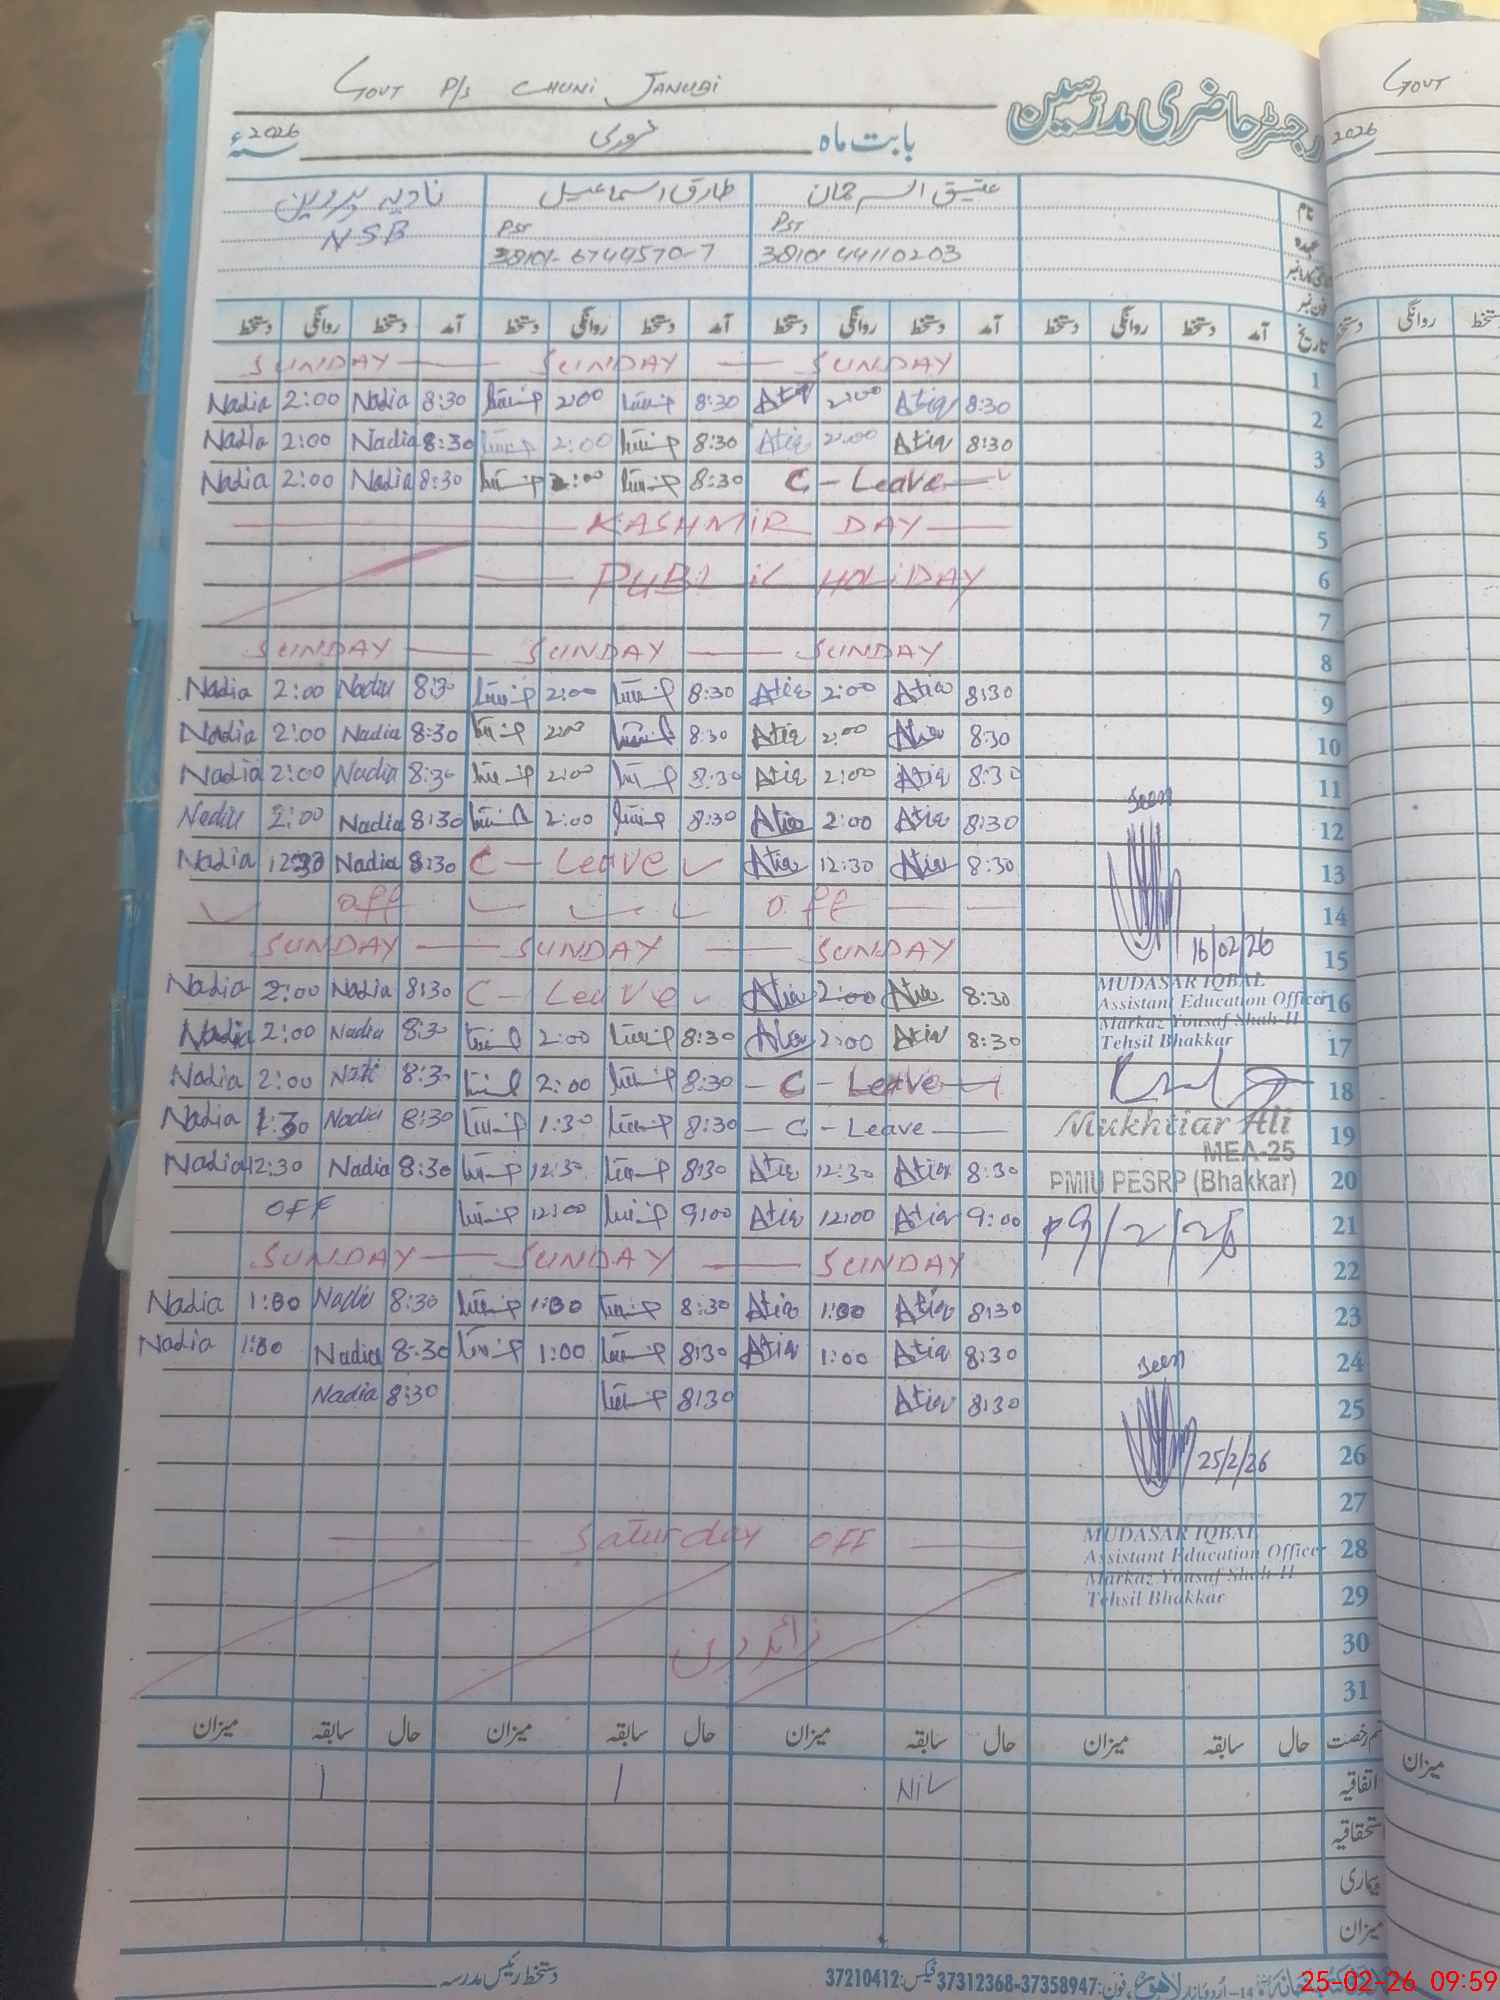 GOVT P/S CHUNI JANUBI
رجسٹر حاضری مدرسین
بابت ماہ فروری 2026ء
نام عتیق الرحمان طارق اسماعیل نادیہ پروین
عہدہ PST PST NSB
38101-6744570-7
فون نمبر
تاریخ آمد دستخط روانگی دستخط آمد دستخط روانگی دستخط آمد دستخط روانگی دستخط آمد دستخط روانگی دستخط
SUNDAY — SUNDAY — SUNDAY 1
Nadia 2:00 Nadia 8:30 2:00 8:30 Atiq 2:00 Atiq 8:30 2
Nadia 2:00 Nadia 8:30 2:00 8:30 Atiq 2:00 Atiq 8:30 3
Nadia 2:00 Nadia 8:30 2:00 8:30 C - Leave 4
KASHMIR DAY 5
PUBLIC HOLIDAY 6
7
SUNDAY — SUNDAY — SUNDAY 8
Nadia 2:00 Nadia 8:30 2:00 8:30 Atiq 2:00 Atiq 8:30 9
Nadia 2:00 Nadia 8:30 2:00 8:30 Atiq 2:00 Atiq 8:30 10
Nadia 2:00 Nadia 8:30 2:00 8:30 Atiq 2:00 Atiq 8:30 11
Seen
Nadia 2:00 Nadia 8:30 2:00 8:30 Atiq 2:00 Atiq 8:30 12
Nadia 12:30 Nadia 8:30 C - Leave Atiq 12:30 Atiq 8:30 13
off off 14
SUNDAY — SUNDAY — SUNDAY 15
16/02/26
Nadia 2:00 Nadia 8:30 C - Leave Atiq 2:00 Atiq 8:30 16
MUDASAR IQBAL
Assistant Education Officer
Markaz Yousaf Shah II
Tehsil Bhakkar
Nadia 2:00 Nadia 8:30 2:00 8:30 Atiq 2:00 Atiq 8:30 17
Nadia 2:00 8:30 2:00 8:30 — C - Leave 18
Nadia 1:30 Nadia 8:30 1:30 8:30 — C - Leave 19
Mukhtiar Ali
MEA-25
PMIU PESRP (Bhakkar)
Nadia 12:30 Nadia 8:30 12:30 8:30 Atiq 12:30 Atiq 8:30 20
OFF 12:00 9:00 Atiq 12:00 Atiq 9:00 21
19/2/26
SUNDAY — SUNDAY — SUNDAY 22
Nadia 1:00 Nadia 8:30 1:00 8:30 Atiq 1:00 Atiq 8:30 23
Nadia 1:00 Nadia 8:30 1:00 8:30 Atiq 1:00 Atiq 8:30 24
Seen
Nadia 8:30 8:30 Atiq 8:30 25
26
25/2/26
27
Saturday OFF 28
MUDASAR IQBAL
Assistant Education Officer
Markaz Yousaf Shah II
Tehsil Bhakkar
29
زائد دن 30
31
قسم رخصت حال سابقہ میزان حال سابقہ میزان حال سابقہ میزان حال سابقہ میزان
اتفاقیہ Nil 1 1
استحقاقیہ
بیماری
میزان
دستخط رئیس مدرسہ
فون: 37358947-37312368 فیکس: 37210412
GOVT
2026
روانگی
میزان
25-02-26 09:59